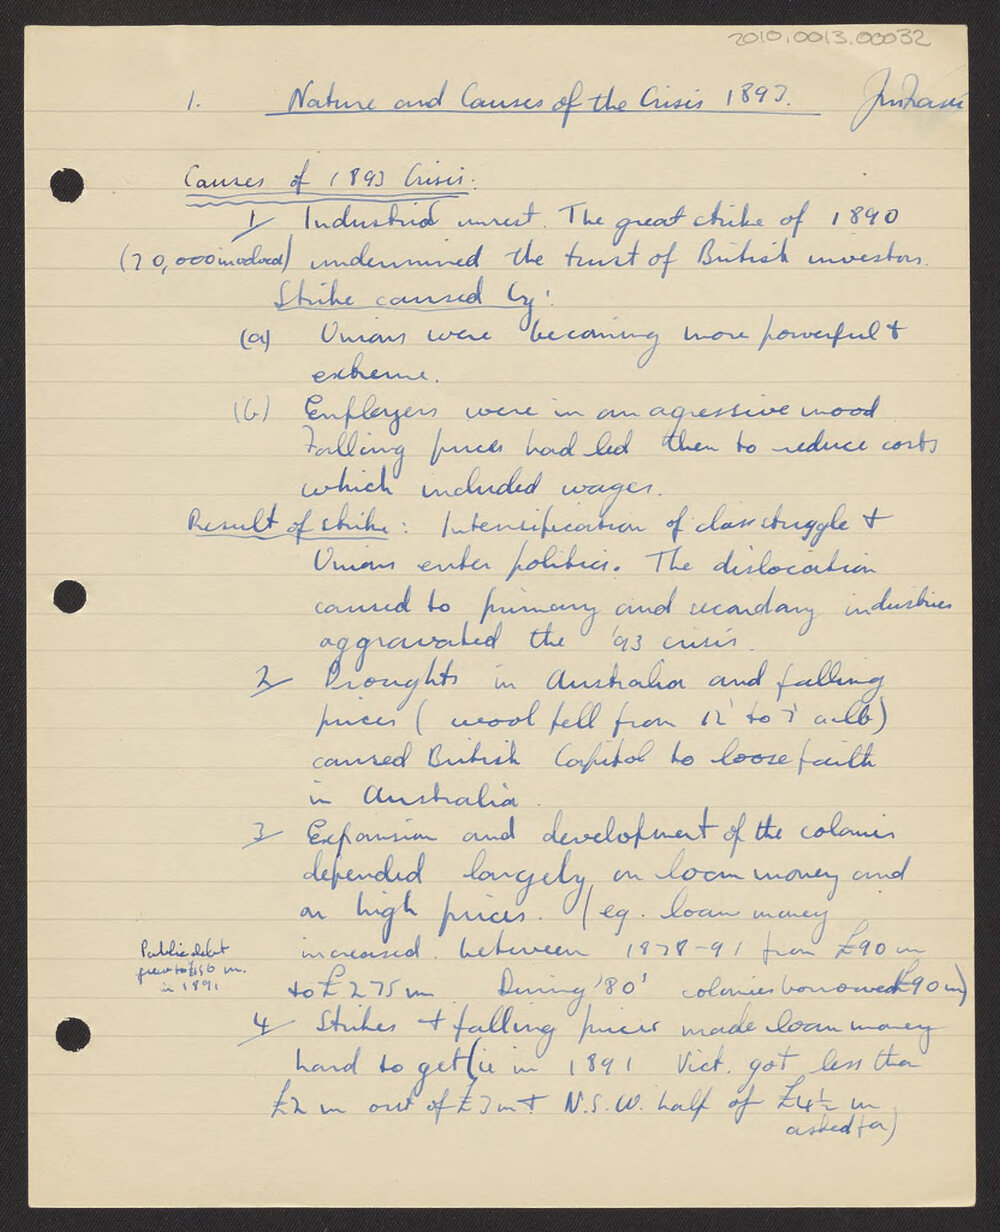 2010.0013.00032
1. Nature and Causes of the Crisis 1893.
Causes of 1893 Crisis:
1/ Industrial unrest. The great strike of 1890
( 0,000 involved) undermined the trust of British investors.
Strike caused by:
(a) Unions were becoming more powerful +
extreme.
(b) Employers were in an agressive mood
Falling prices had led them to reduce costs
which included wages.
Result of strike: Intensification of class struggle +
Unions enter politics. The dislocation
caused to primary and secondary industries
aggravated the '93 crisis.
2/ Droughts in Australia and falling
prices (wool fell from 12' to 7' a lb)
caused British Capital to loose faith
in Australia.
3/ Expansion and development of the colonies
depended largely on loan money and
on high prices. (eg. loan money
increased between 1878-91 from £90 m
to £275 m. During '80' colonies borrowed £90 m)
Public debt
grew to £156 m.
in 1891
4/ Strikes + falling prices made loan money
hard to get (ie in 1891 Vict. got less than
£2 m out of £3 m + N.S.W. half of £4½ m
asked for)